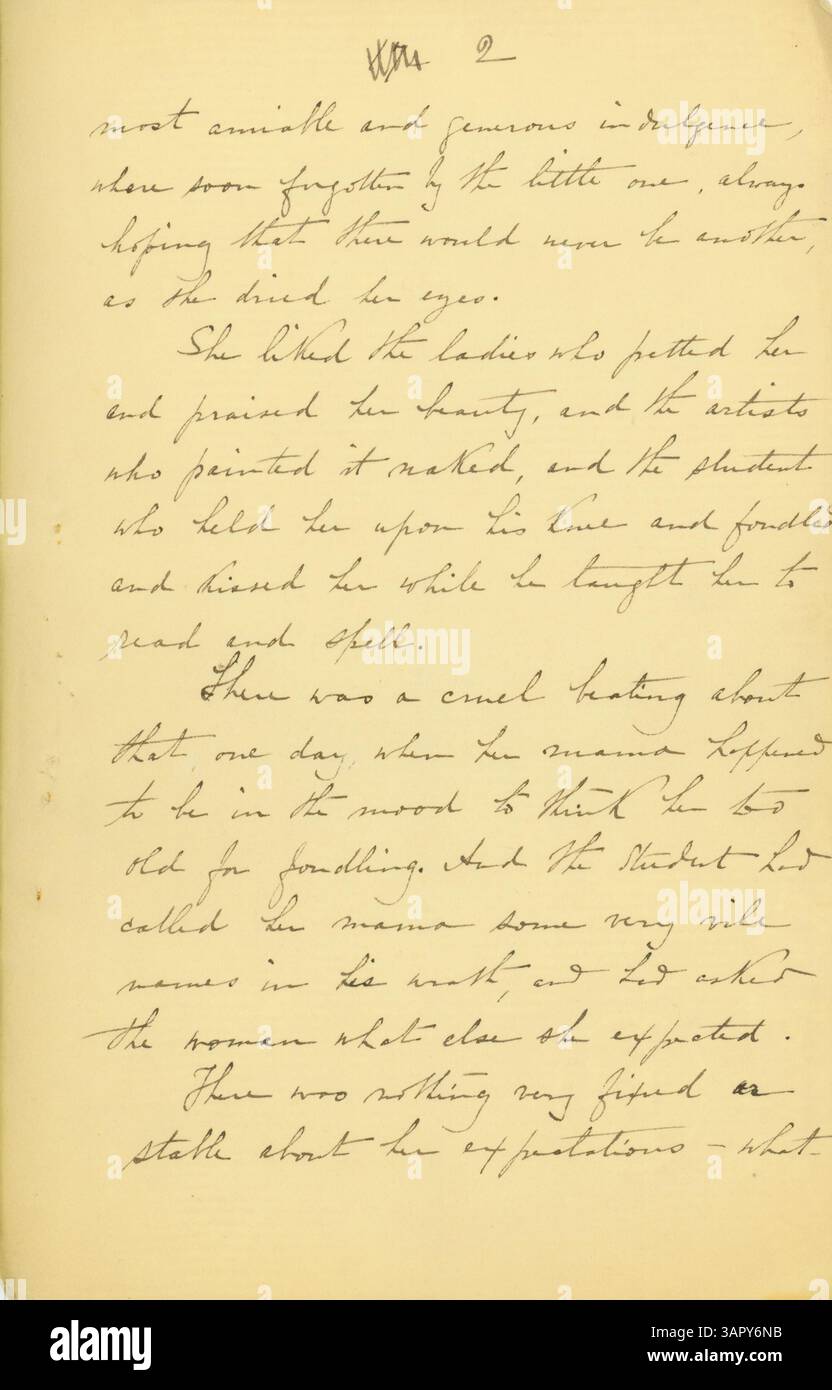 2
most amiable and generous indulgence,
where soon forgotten by the little one, always
hoping that there would never be another,
as she dried her eyes.
She liked the ladies who petted her
and praised her beauty, and the artists
who painted it naked, and the student
who held her upon his knee and fondled
and kissed her while he taught her to
read and spell.
There was a cruel beating about
that, one day, when her mama happened
to be in the mood to think her too
old for fondling. And the student had
called her mama some very vile
names in his wrath, and had asked
the woman what else she expected.
There was nothing very fixed or
stable about her expectations - what-
alamy
Image ID: 3APY6NB
www.alamy.com